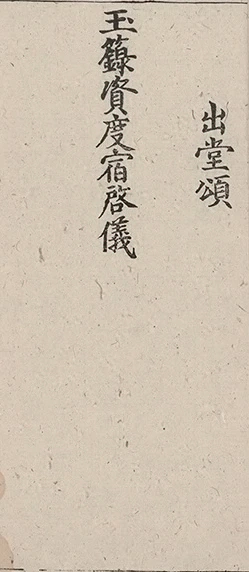 出堂頌
玉籙資度宿啓儀